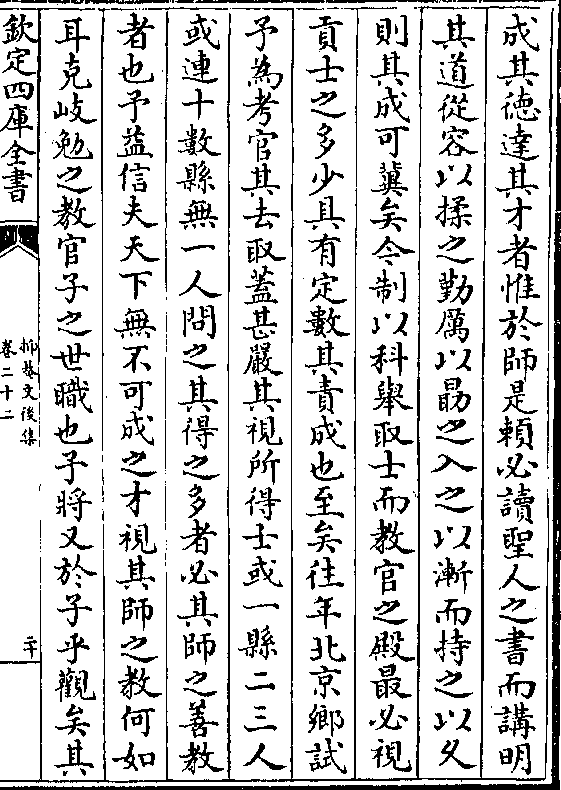 成其德達其才者惟於師是賴必讀聖人之書而講明
其道從容以揉之勤厲以勗之入之以漸而持之以久
則其成可冀矣令制以科舉取士而教官之殿最必視
貢士之多少具有定數其責成也至矣往年北京鄉試
予為考官其去取蓋甚嚴其視所得士或一縣二三人
或連十數縣無一人問之其得之多者必其師之善教
者也予益信夫天下無不可成之才視其師之教何如
耳克岐勉之教官子之世職也予將又於子乎觀矣其
欽定四庫全書
抑菴文後集
卷二十二
二十